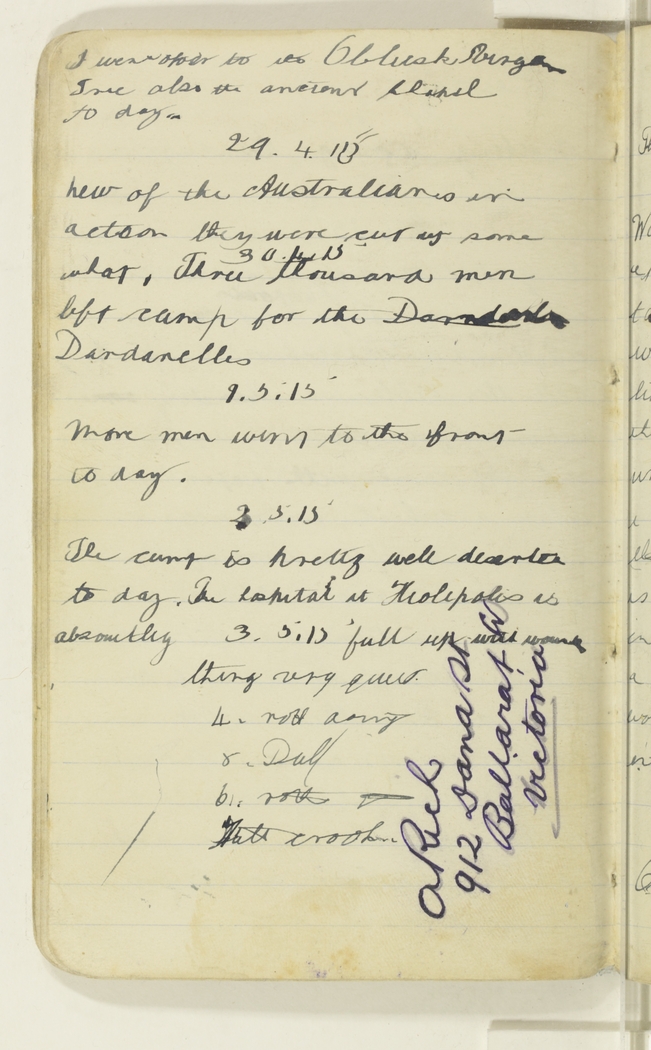 I went over to the Oblusk Virgen
Tree also the ancient
to day.
29.4.15
new of the Australians in
action they were cut up some
30.4.15
what, Three thousand men
left camp for the
Dardanelles
9.5.15
More men went to the front
to day.
2 5.15
The camp is pretty well deserted
to day. The hospital at Heolipolis is
absoutley 3.5.15 full up with
thing very quiet
4. not doing
Dull
6.
crook
A Rich
912 Dana St
Ballarat W
Victoria